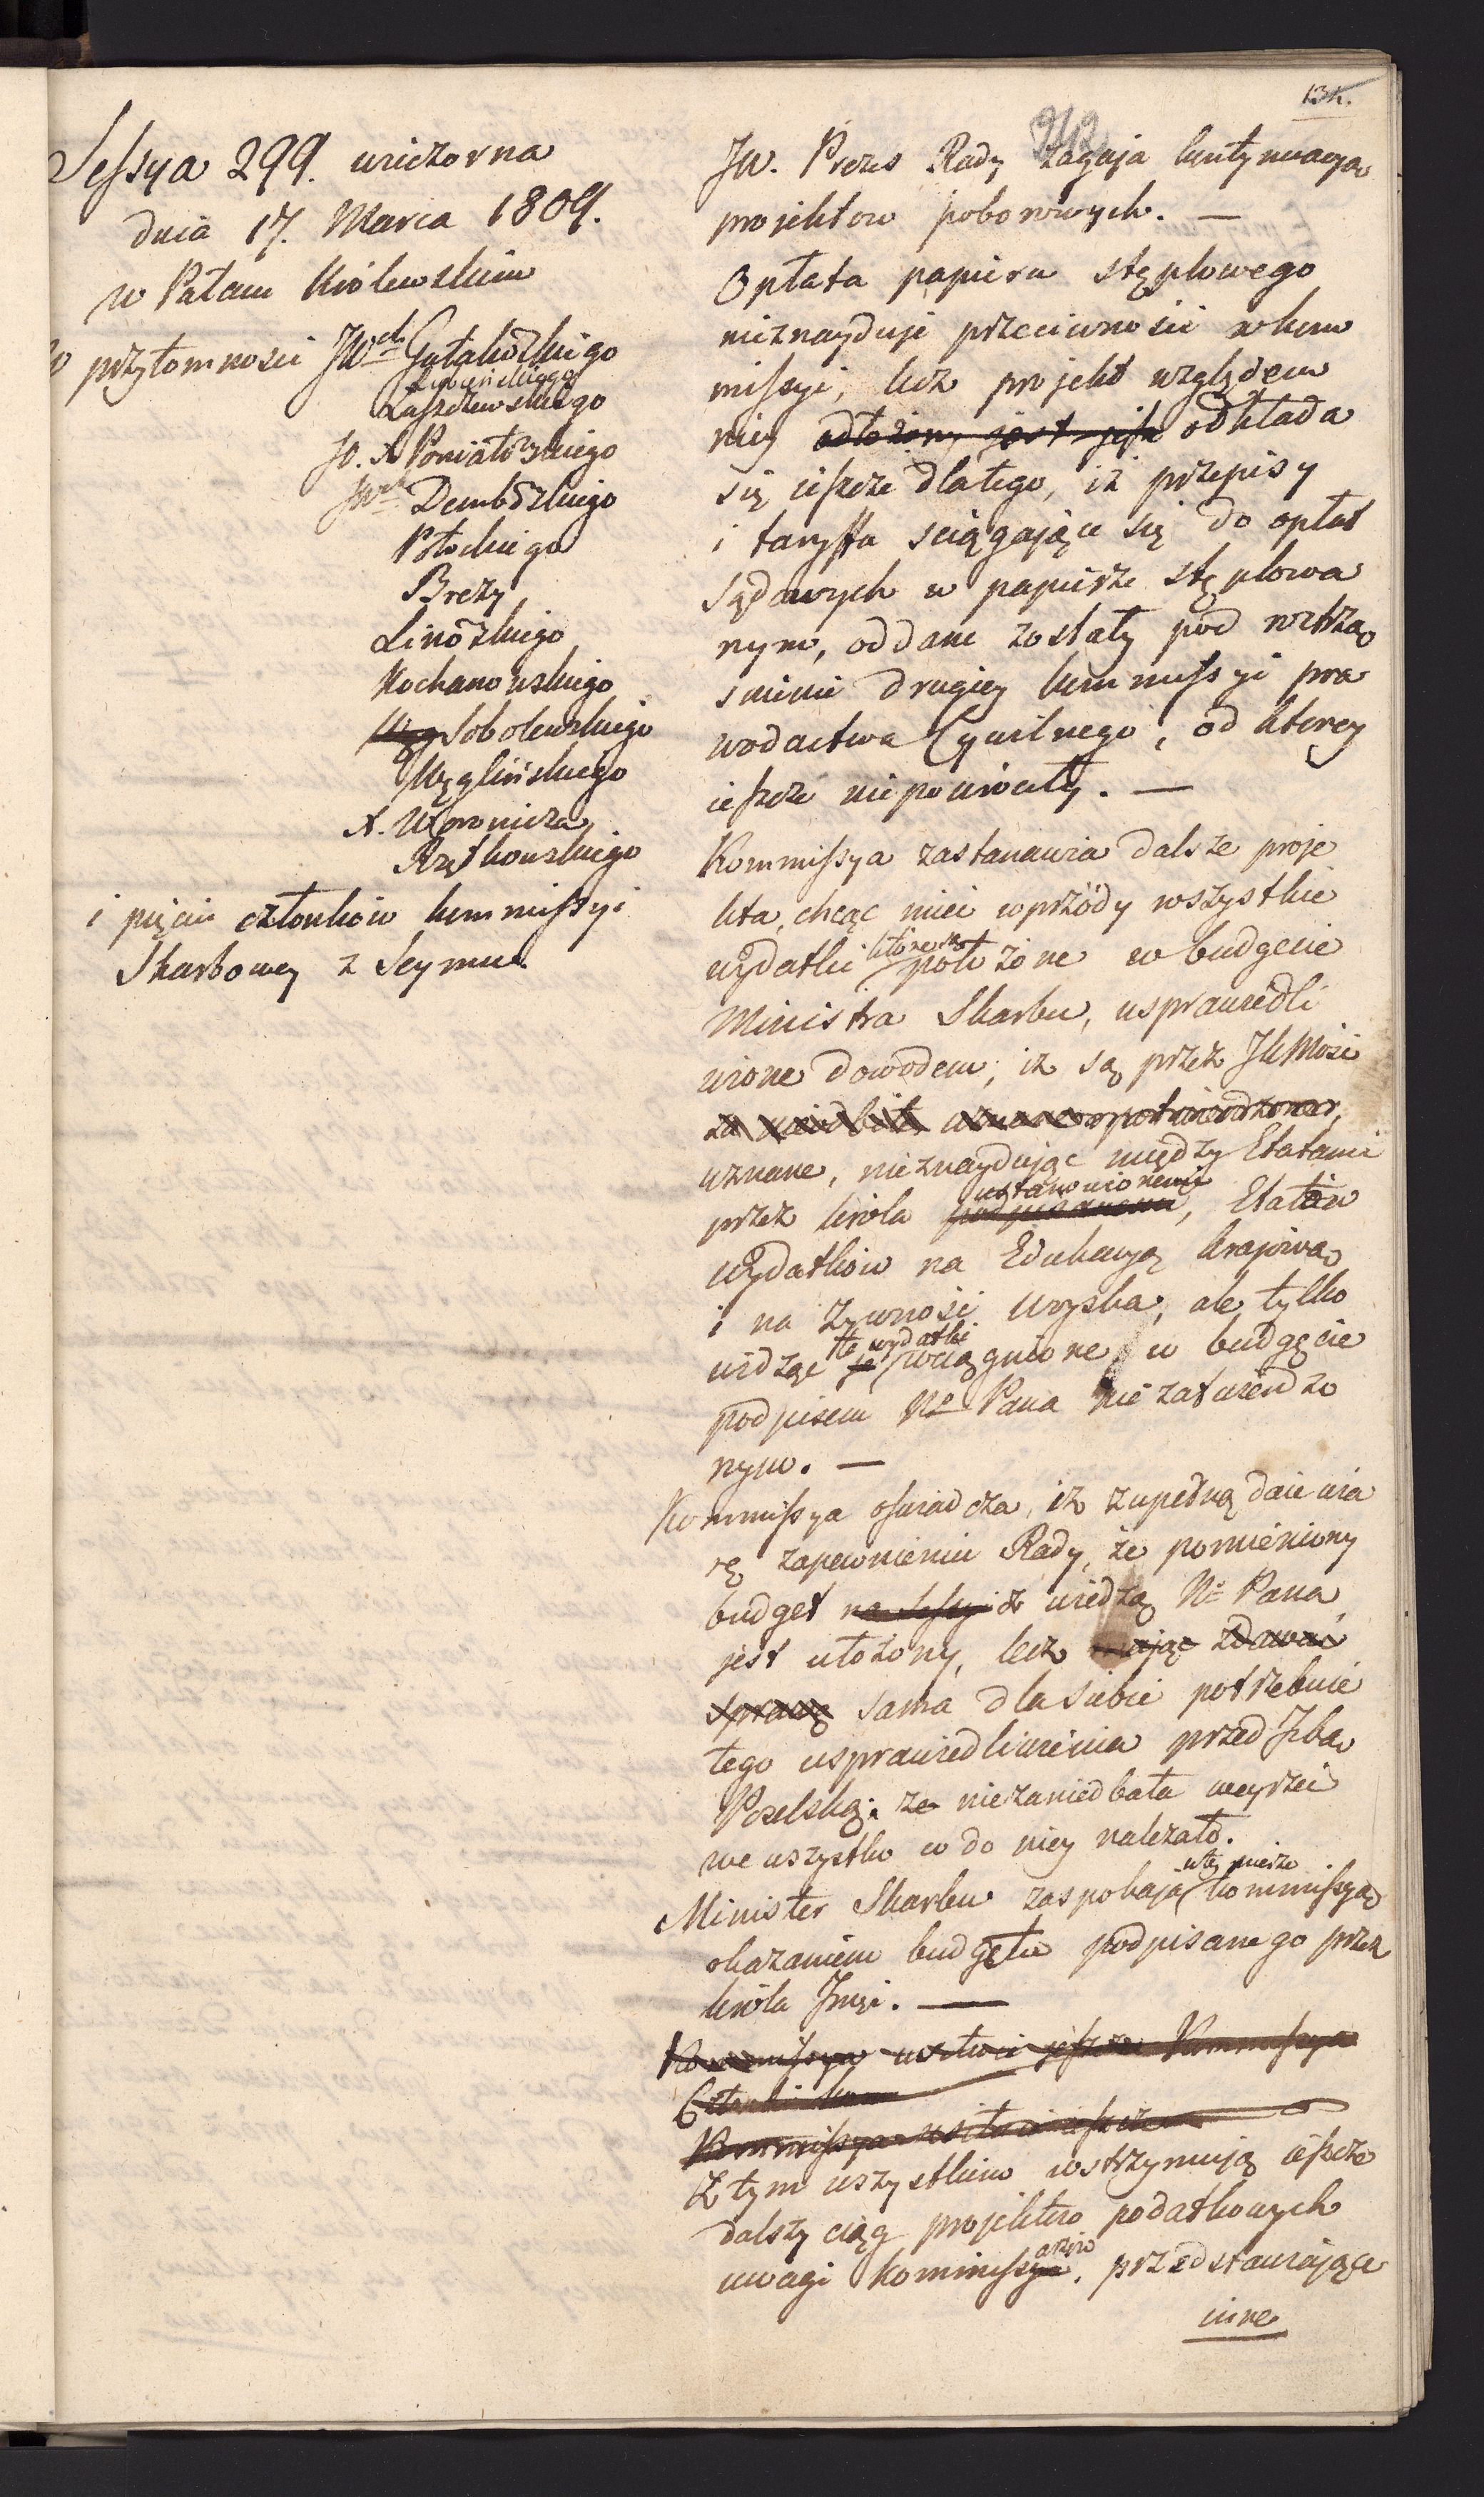 134.
Sessya 299. wieczorna
dnia 17. Marca 1809.
w Pałacu Królewskim
w przytomnosci JWch Gutakowskiego
Lubieńskiego
Łuszczewskiego
JO. X Poniatowskiego
JWch Dembowskiego
Potockiego
Brezy
Linowskiego
Kochanowskiego
Sobolewskiego
Węglińskiego
X. Woronicza
Rzętkowskiego
i pięciu członków kommissyi
Skarbowey z Seymu
JW. Prezes Rady zagaja kontynuacyą
projektow poborowych. —
Opłata papieru stęplowego
nieznayduje przeciwności w kom
missyi, lecz projekt względem
niey odłożony jest odkłada
się ieszcze dlatego, iż przepisy
i taryffa sciągające się do opłat
sądowych w papierze stęplowa
nym, oddane zostały pod roztrzą
snienie drugiey kommissyi pra
wodactwa Cywilnego, od ktorey
ieszcze niepowróciły. —
Kommissya zastanawia dalsze proje
kta, chcąc mieć wprzódy wszystkie
wydatki które są położone w budgecie
Ministra Skarbu, usprawiedli
wione dowodem, iż są przez JKMość
potwierdzone,
uznane, nieznaydując między Etatami
przez króla ustanowionemi, Etatów
wydatków na Edukacyą krajową
i na żywność woyska, ale tylko
widząc te wydatki wciągnione w budgecie
podpisem No Pana nie zatwierdzo
nym. —
Kommissya oswiadcza, iż zupełną daie wia
rę zapewnieniu Rady, że pomieniony
budget na Sessyi z wiedzą No Pana
jest ułożony, lecz mając zdawać
sprawę sama dla siebie potrzebuie
tego usprawiedliwienia przed Izbą
Poselską: że niezaniedbała weyrzeć
we wszystko co do niey należało.
Minister Skarbu zaspokaja w tey mierze kommissyą
okazaniem budgetu podpisanego przez
króla Jmci. —
Kommissya jeszcze Kommissya
Kommissya ieszcze
Z tym wszystkim wstrzymują ieszcze
dalszy ciąg projektow podatkowych
uwagi kommissarzów, przedstawiające
inne